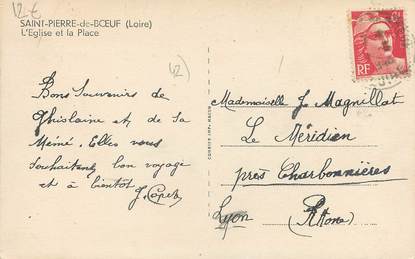 12 €
SAINT-PIERRE-de-BŒUF (Loire)
L'Eglise et la Place
42)
Bons Souvenirs de
Ghislaine et de sa
Mémé. Elles vous
souhaitent bon voyage
et à bientôt
J. Copet
RF
Mademoiselle J. Magnillat
Le Méridien
près Charbonnières
Lyon (Rhône)